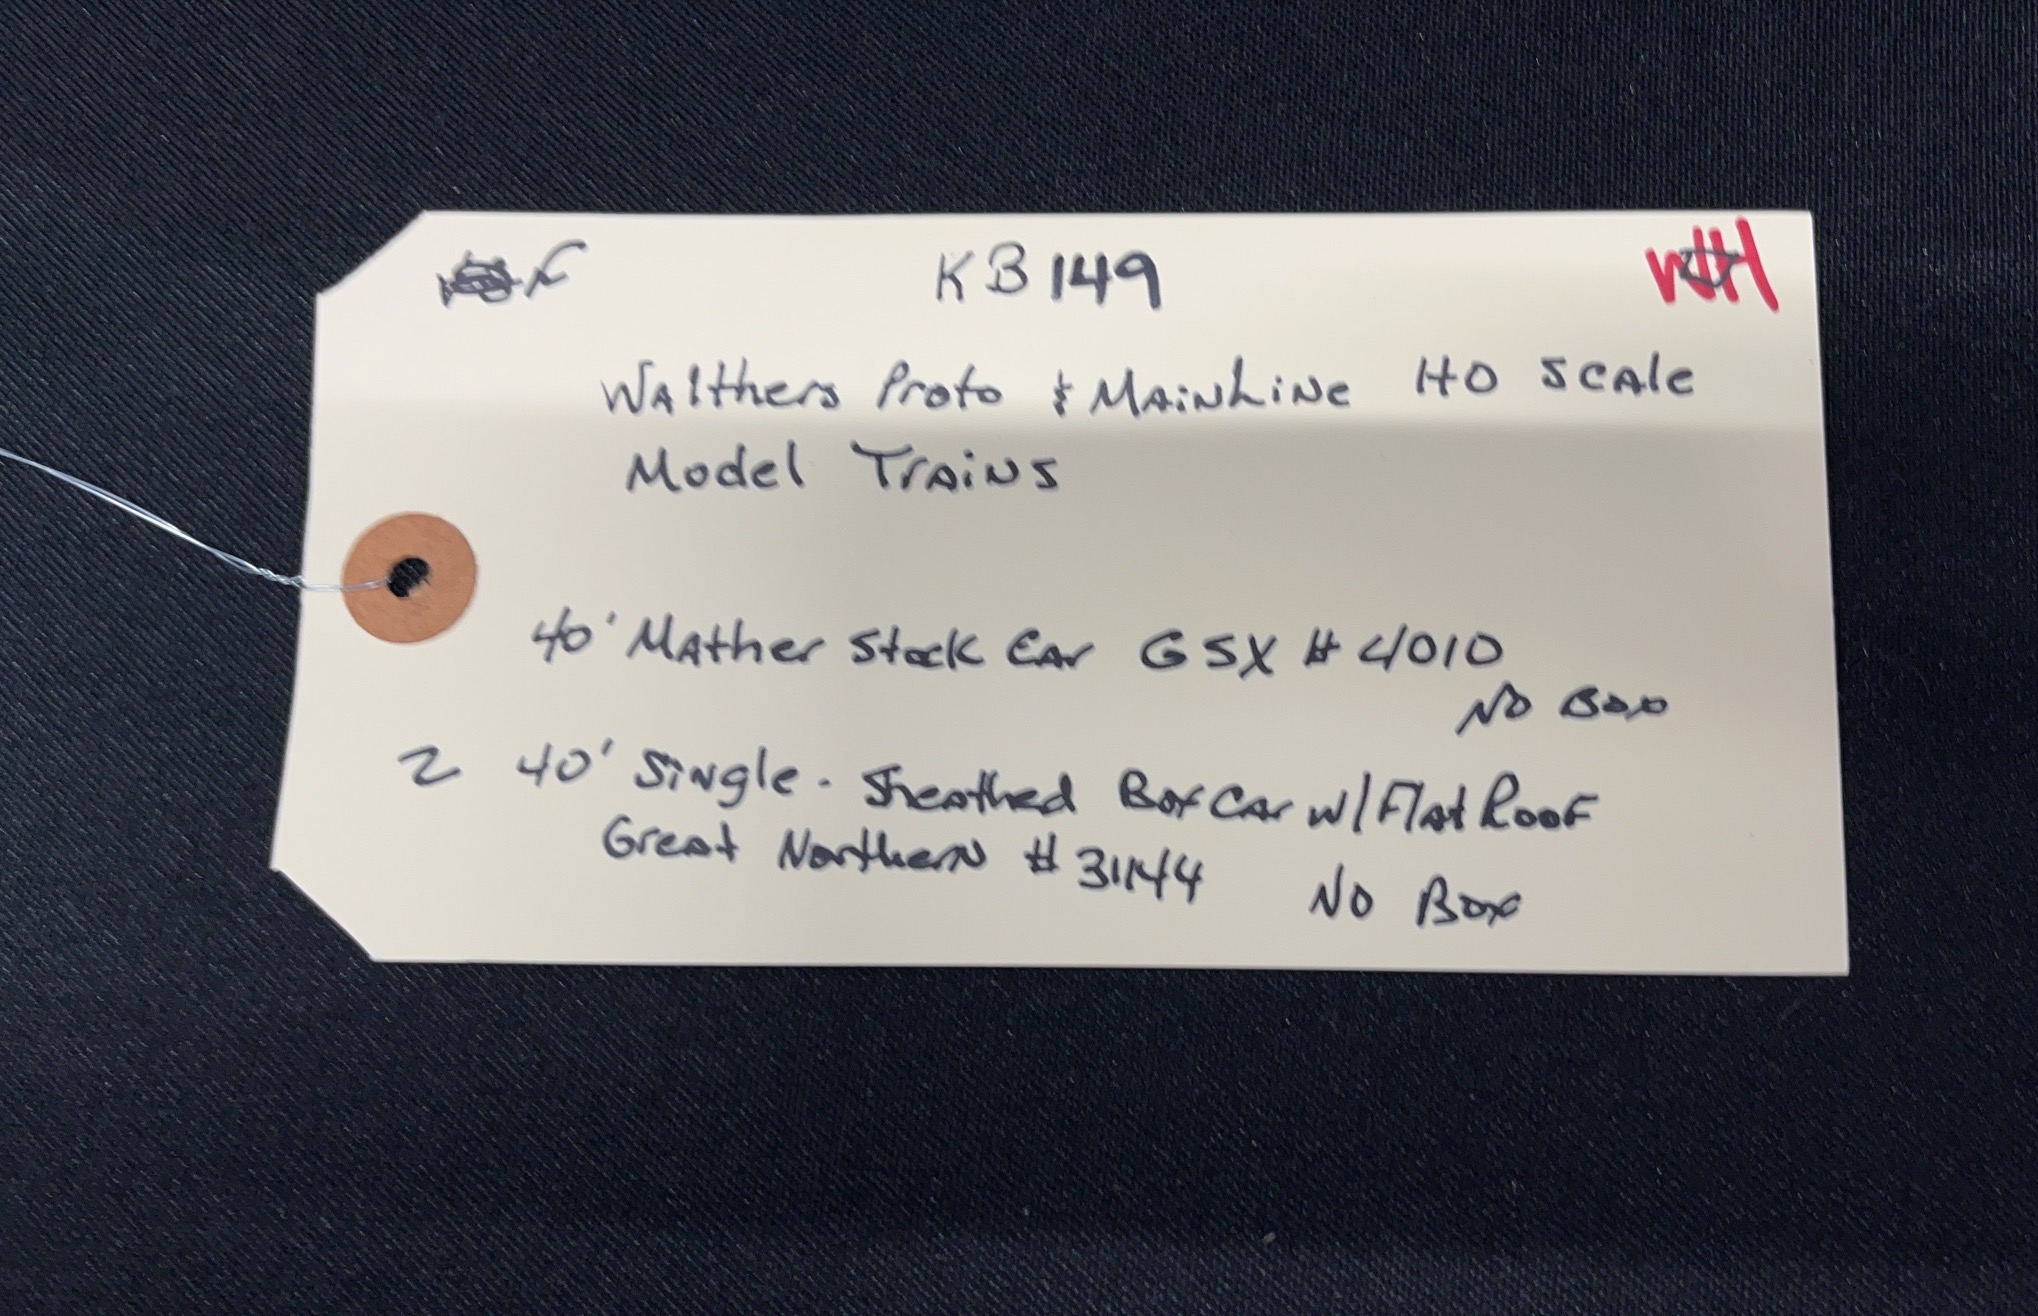 KB149
WH
Walthers Proto & Mainline HO Scale
Model Trains
40' Mather Stock Car GSX # 4010
No Box
2 40' Single-Sheathed Box Car w/ Flat Roof
Great Northern # 31144 No Box